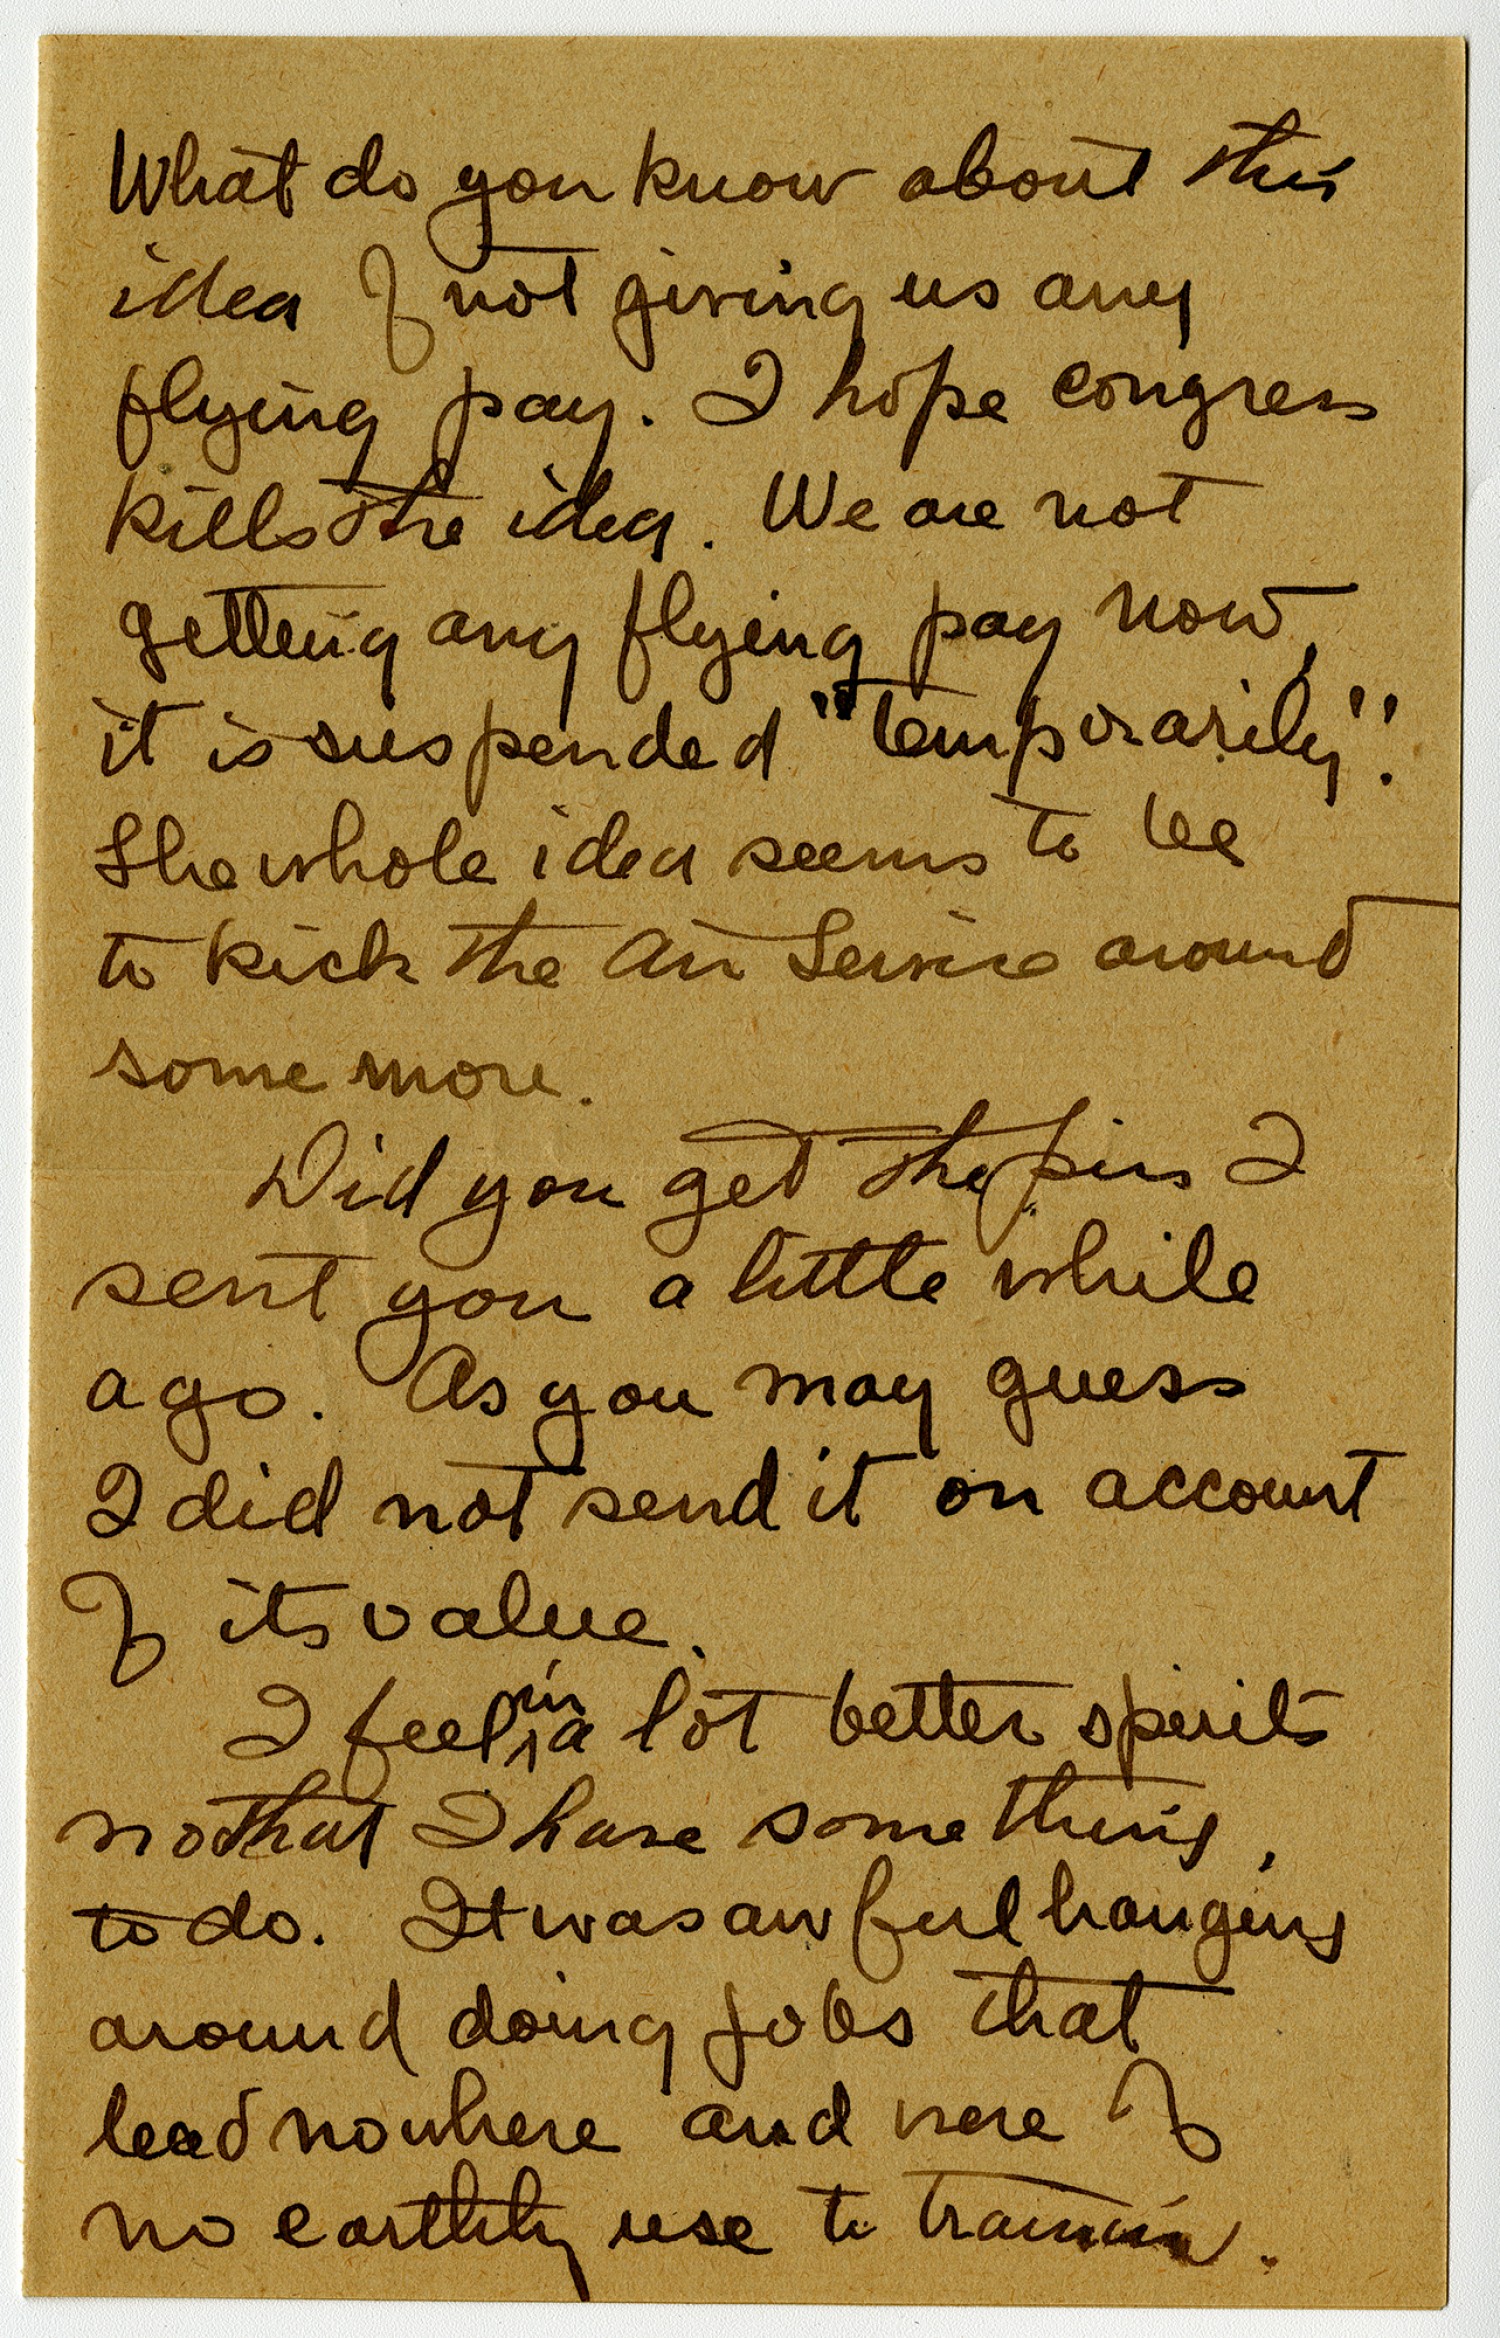 What do you know about this
idea of not giving us any
flying pay. I hope congress
kills the idea. We are not
getting any flying pay now,
it is suspended "temporarily".
The whole idea seems to be
to kick the Air Service around
some more.
Did you get the pin I
sent you a little while
ago. As you may guess
I did not send it on account
of its value.
I feel in a lot better spirits
no that I have something
to do. It was awful hanging
around doing jobs that
lead nowhere and were of
no earthly use to